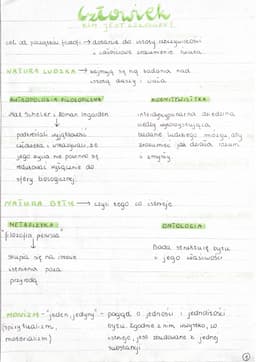 Człowiek
KIM JEST CZŁOWIEK?
cel od początku filozofii → dotarcie do istoty rzeczywistości
+ całościowe zrozumienie świata
NATURA LUDZKA → zajmują się nią badania nad
istotą duszy i ciała
ANTROPOLOGIA FILOZOFICZNA
KOGNITYWISTYKA
Max Scheler i Roman Ingarden
podkreślali wyjątkowość
człowieka i wskazywali, że
jego bycia nie powinno się
redukować wyłącznie do
sfery biologicznej.
interdyscyplinarna dziedzina
wiedzy wykorzystująca
badanie ludzkiego mózgu, aby
zrozumieć jak działa rozum
i zmysły
NATURA BYTU → czyli tego co istnieje
METAFIZYKA
"filozofia pierwsza"
skupia się na istocie
istnienia poza
przyrodą
ONTOLOGIA
Bada strukturę bytu
i jego właściwości
MONIZM - "jeden, jedyny" - pogląd o jedności i jednolitości
(spirytualizm, bytu. Zgodnie z nim wszystko, co
materializm) istnieje, jest zbudowane z jednej
substancji
1